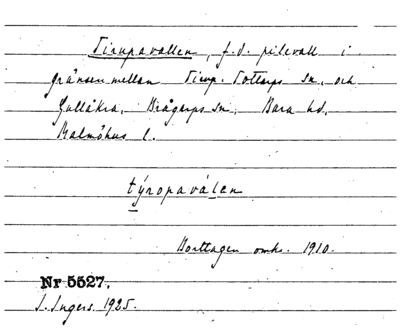 Tirupavallen, f.d. pilevall i
gränsen mellan Tirup, Tottarps sn, och
Gullåkra, Brågarps sn, Bara hd,
Malmöhus l.
týropaválen
Borttagen omkr. 1910.
Nr 5527.
I. Ingers. 1925.